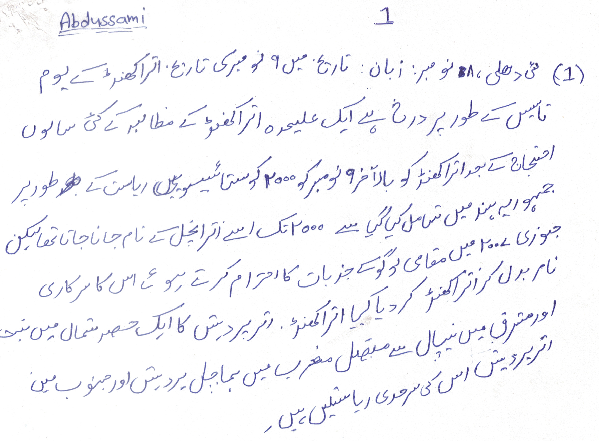 Abdussami
1
(1) نئی دھلی، ۸ نومبر: زبان: تاریخ میں ۹ نومبر کی تاریخ اتراکھنڈ کے یوم
تاسیس کے طور پر درج ہے ایک علیحدہ اتراکھنڈ کے مطالبہ کے کئی سالوں
احتجاج کے بعد اتراکھنڈ کو بالآخر ۹ نومبر کو ۲۰۰۰ کو ستائیسویں ریاست کے طور پر
جمہوریہ ہند میں شامل کیا گیا سے ۲۰۰۰ تک اسے اترانچل کے نام جانا جاتا تھا لیکن
جنوری ۲۰۰۷ میں مقامی لوگو کے جذبات کا احترام کرتے ہوئے اس کا سرکاری
نام بدل کر اتراکھنڈ کر دیا گیا اتراکھنڈ . اتر پردیش کا ایک حصہ شمال میں تبت
اور مشرق میں نیپال سے متصل مغرب میں ہماچل پردیش اور جنوب میں
اتر پردیش اس کی سرحدی ریاستیں ہیں